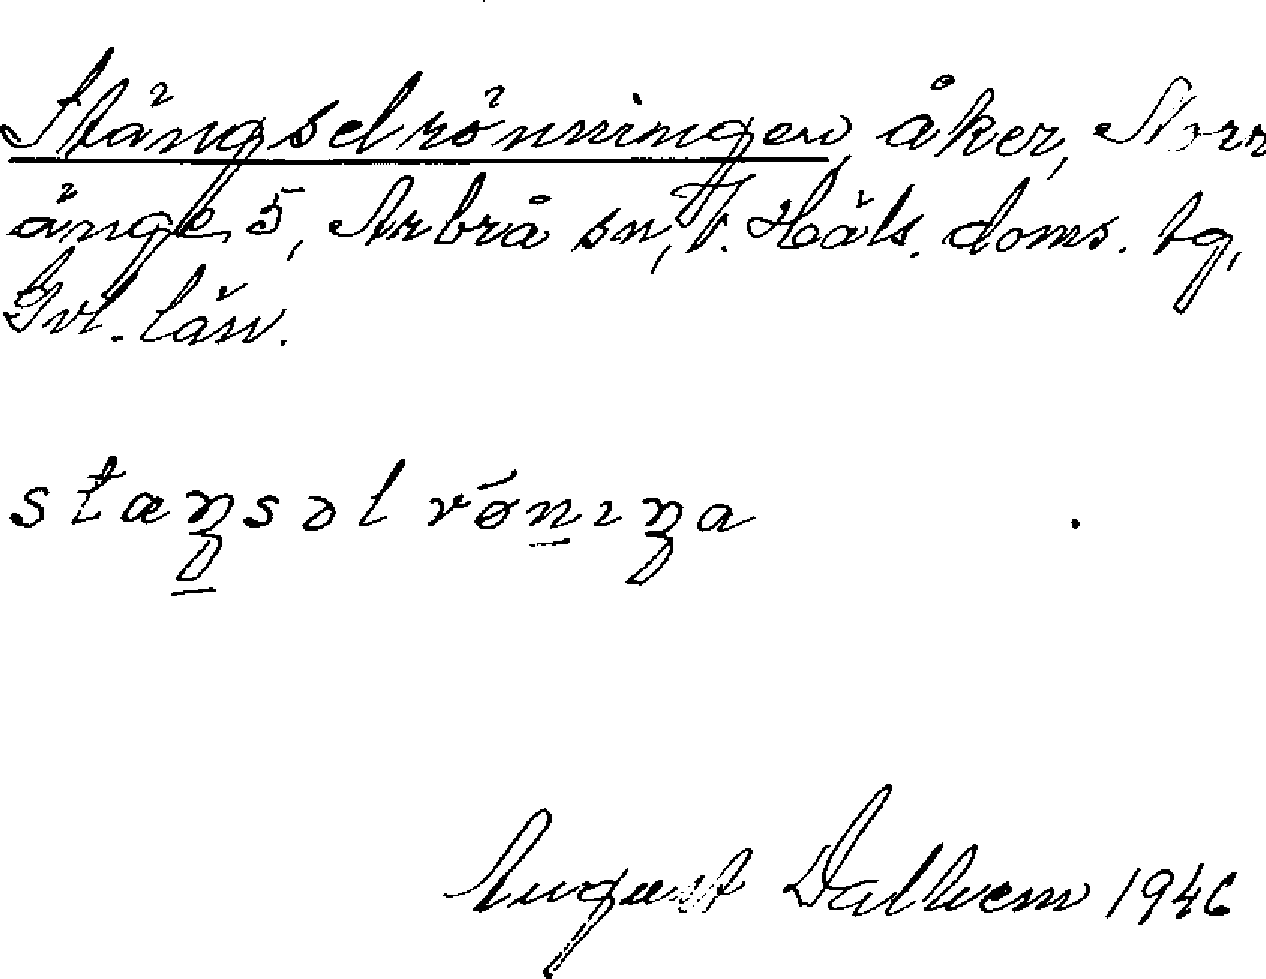 Stängselrönningen, åker, Norr
änge 5, Arbrå sn, V. Häls. doms. tg,
Gvl. län.
stæŋsəl rǿnıŋa
August Dalhem 1946